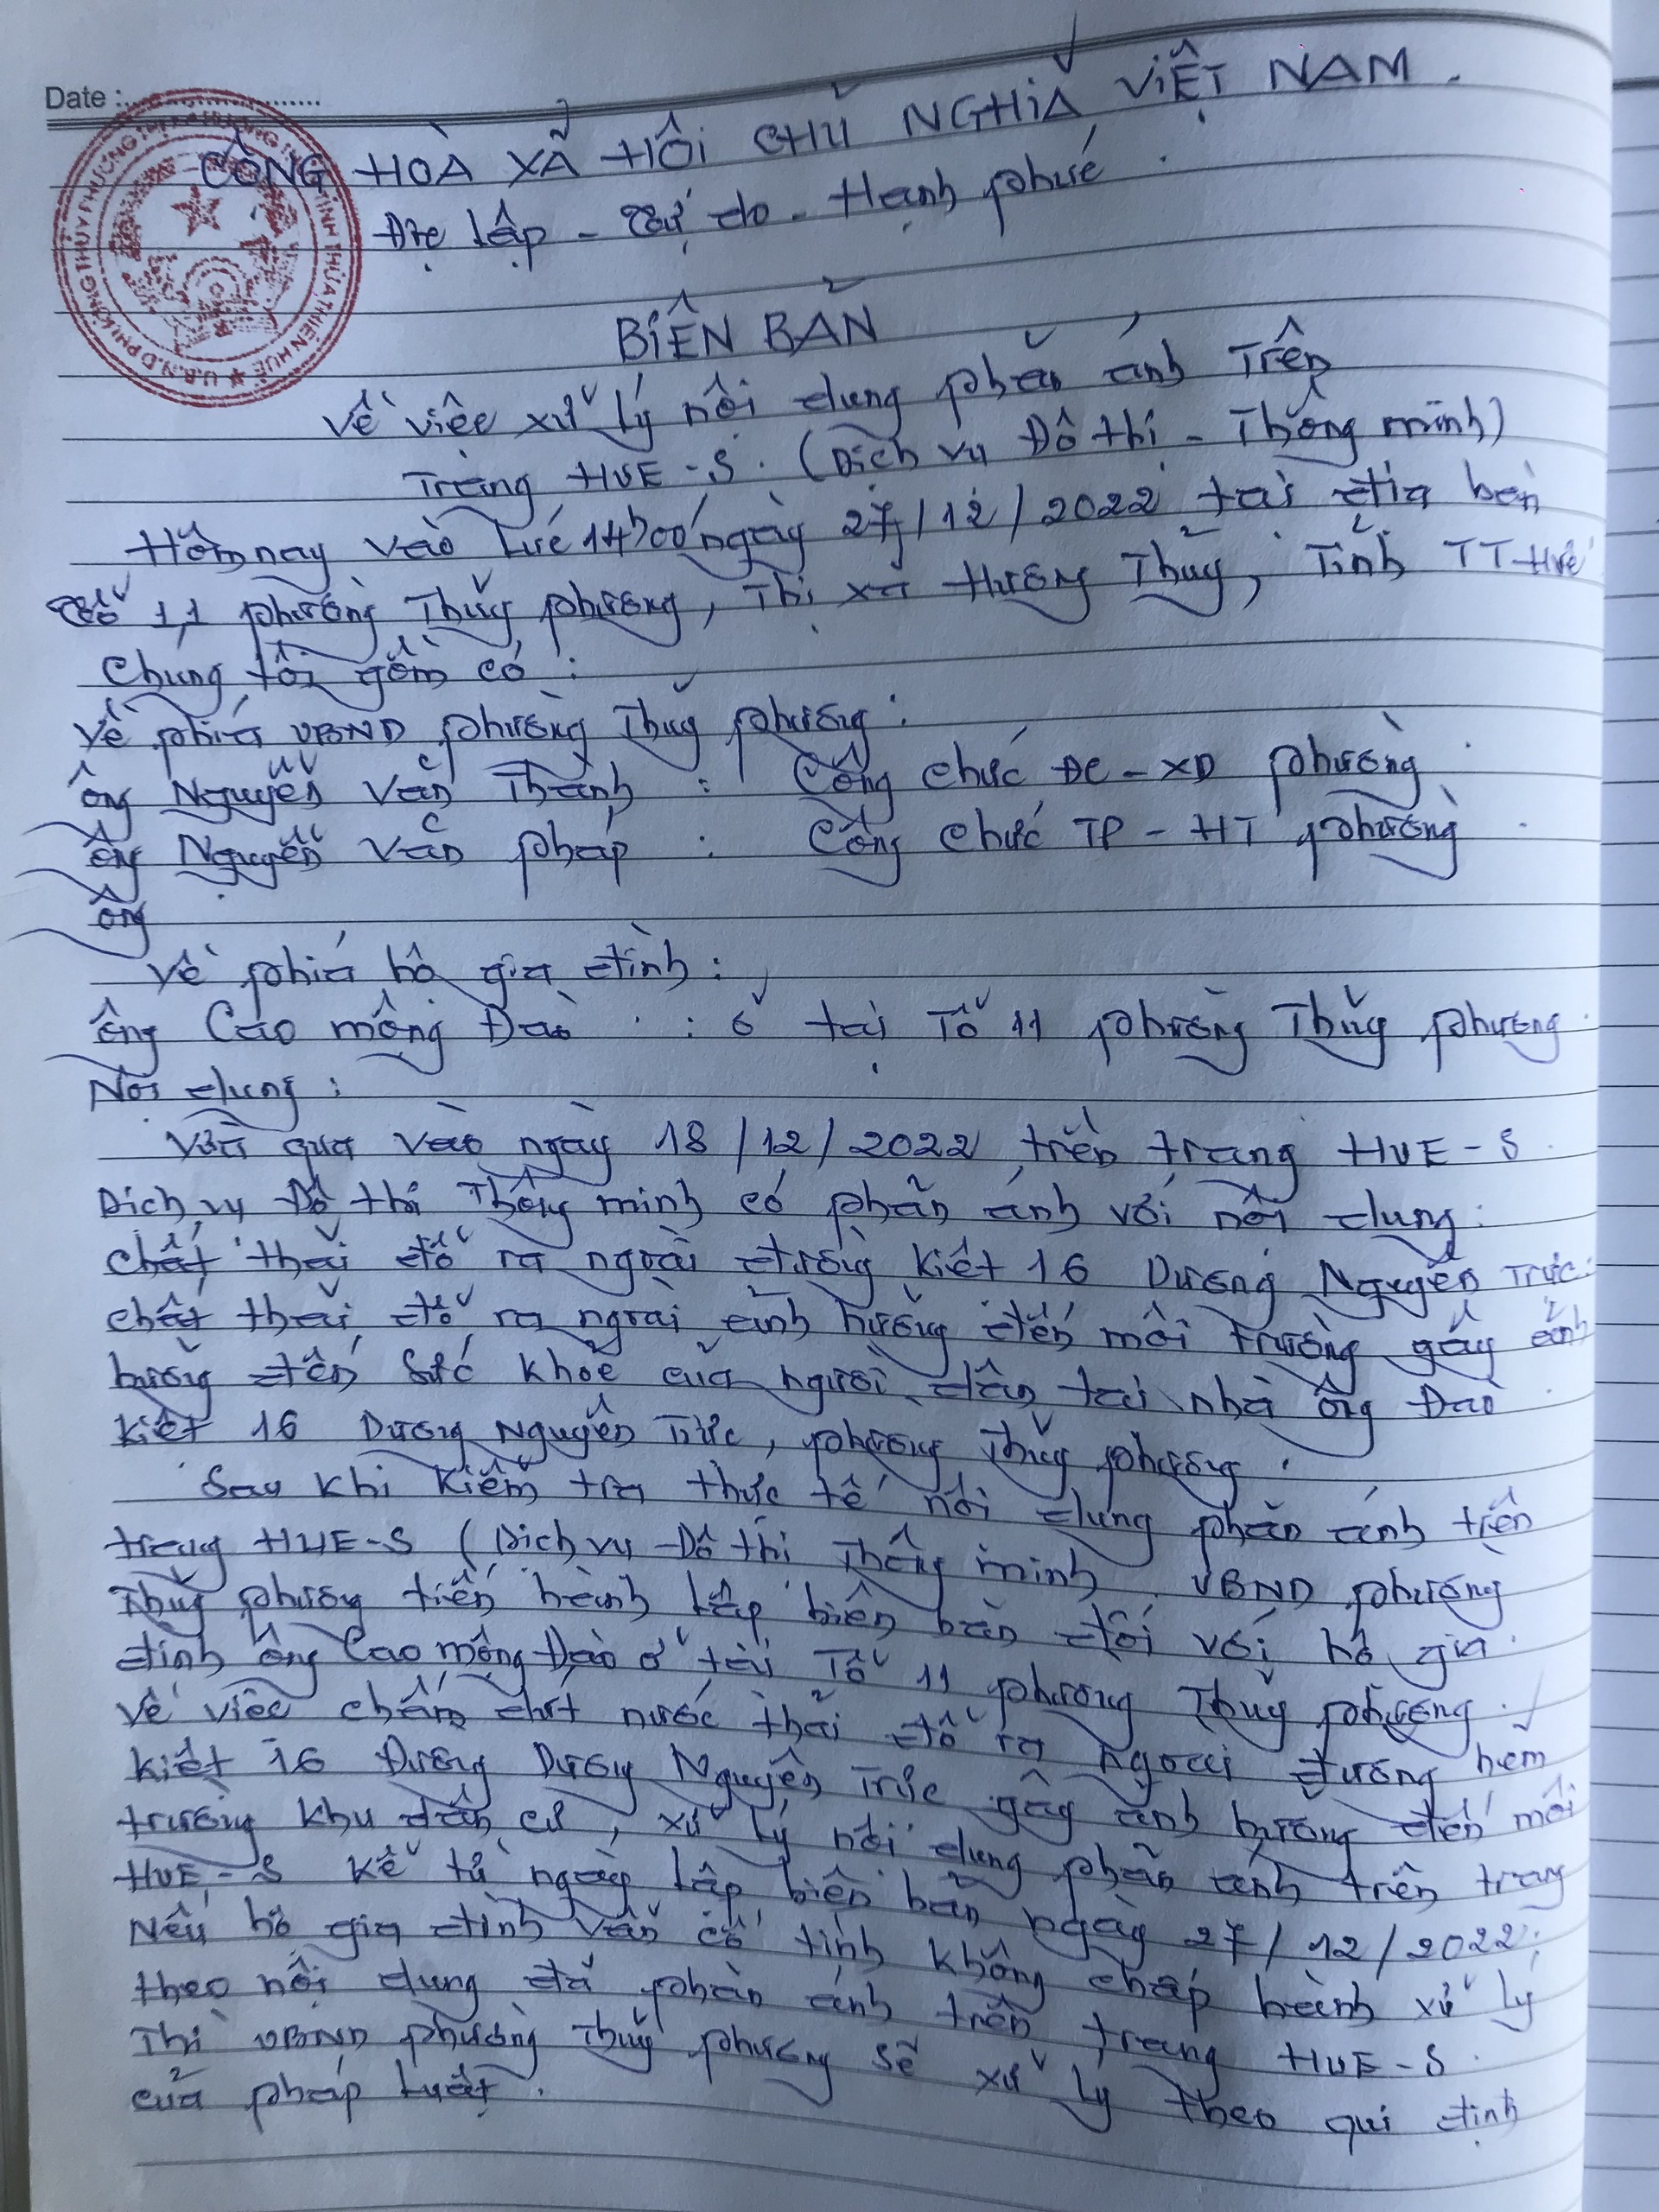 Date :
CỘNG HOÀ XÃ HỘI CHỦ NGHĨA VIỆT NAM.
Độc lập - Tự do - Hạnh phúc
BIÊN BẢN
Về việc xử lý nội dung phản ánh Trên
Trang HUE-S. (Dịch vụ Đô thị - Thông minh)
Hôm nay vào lúc 14h00 ngày 27/12/2022 tại địa bàn
Tổ 11 phường Thủy phương, Thị xã Hương Thủy, Tỉnh TT-Huế
Chúng tôi gồm có :
Về phía UBND phường Thủy phương :
ông Nguyễn Văn Thành : Công chức ĐC - XD phường
ông Nguyễn Văn pháp : Công chức TP - HT phường
ông
Về phía hộ gia đình :
ông Cao mộng Đào : ở tại Tổ 11 phường Thủy phương
Nội dung :
Vừa qua vào ngày 18/12/2022 trên trang HUE-S
Dịch vụ Đô thị Thông minh có phản ánh với nội dung:
chất thải đổ ra ngoài đường Kiệt 16 Dương Nguyên Trực:
chất thải đổ ra ngoài ảnh hưởng đến môi trường gây ảnh
hưởng đến sức khỏe của người dân tại nhà ông Đào
Kiệt 16 Dương Nguyên Trực, phường Thủy phương.
Sau khi kiểm tra thực tế nội dung phản ánh trên
trang HUE-S (Dịch vụ Đô thị Thông minh UBND phường
Thủy phương tiến hành lập biên bản đối với hộ gia
đình ông Cao mộng Đào ở tại Tổ 11 phường Thủy phương.
Về việc chấm dứt nước thải đổ ra ngoài đường hẻm
Kiệt 16 Đường Dương Nguyên Trực gây ảnh hưởng đến môi
trường khu dân cư, xử lý nội dung phản ánh trên trang
HUE-S kể từ ngày lập biên bản ngày 27/12/2022;
Nếu hộ gia đình vẫn cố tình không chấp hành xử lý
theo nội dung đã phản ánh trên trang HUE-S.
Thì UBND phường Thủy phương sẽ xử lý theo qui định
của pháp luật.